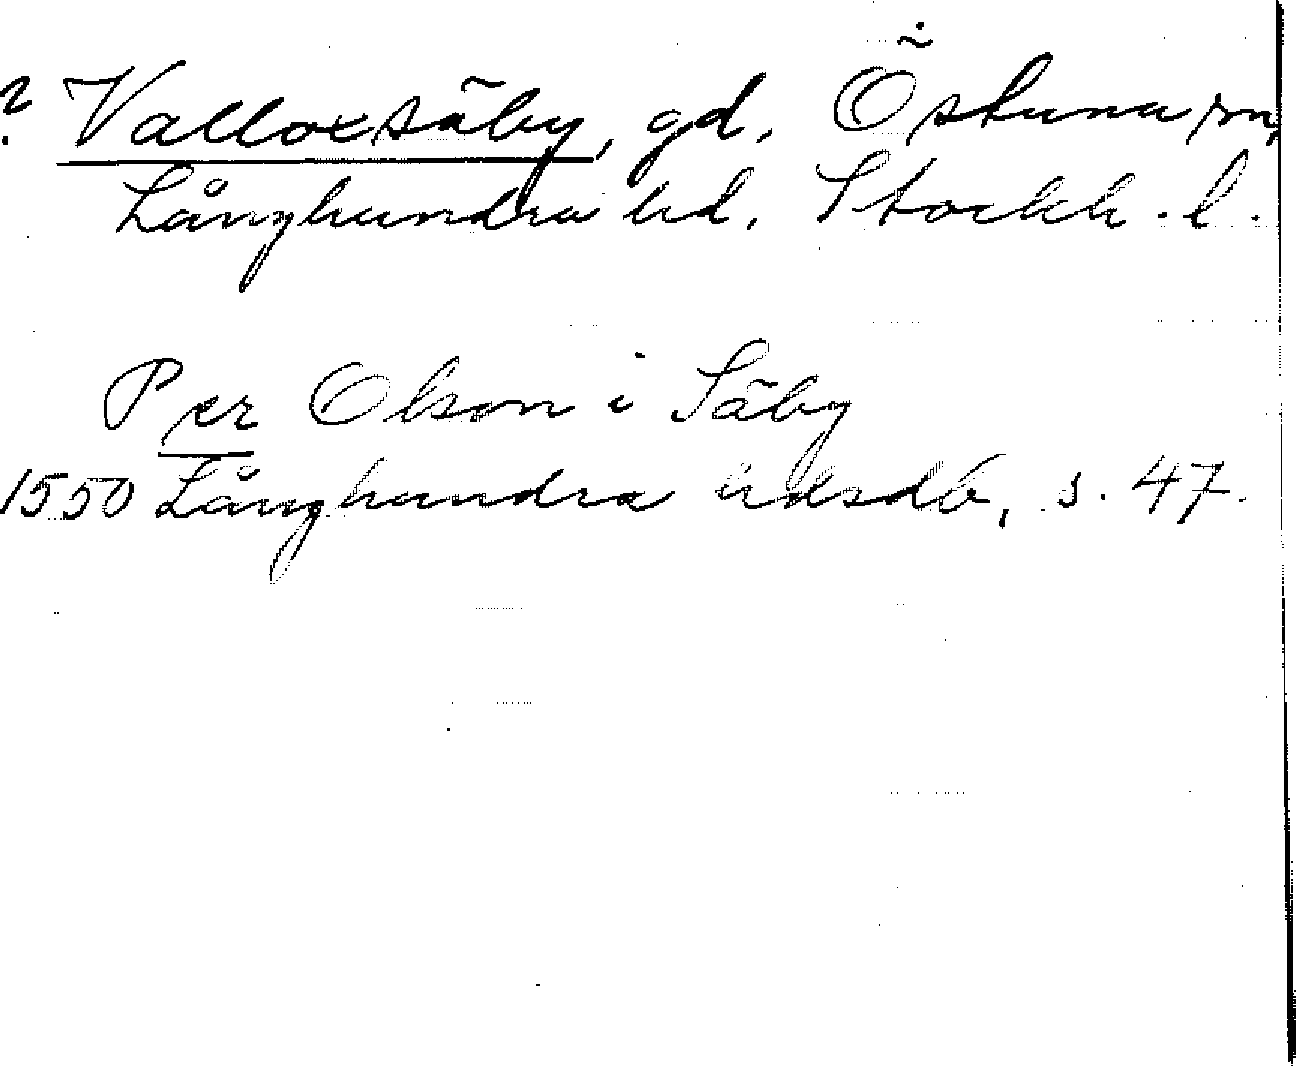 ? Valloxsäby, gd, Östuna sn,
Långhundra hd. Stockh. l.
Per Olson i Säby
1550 Långhundra hdsdb, s. 47.